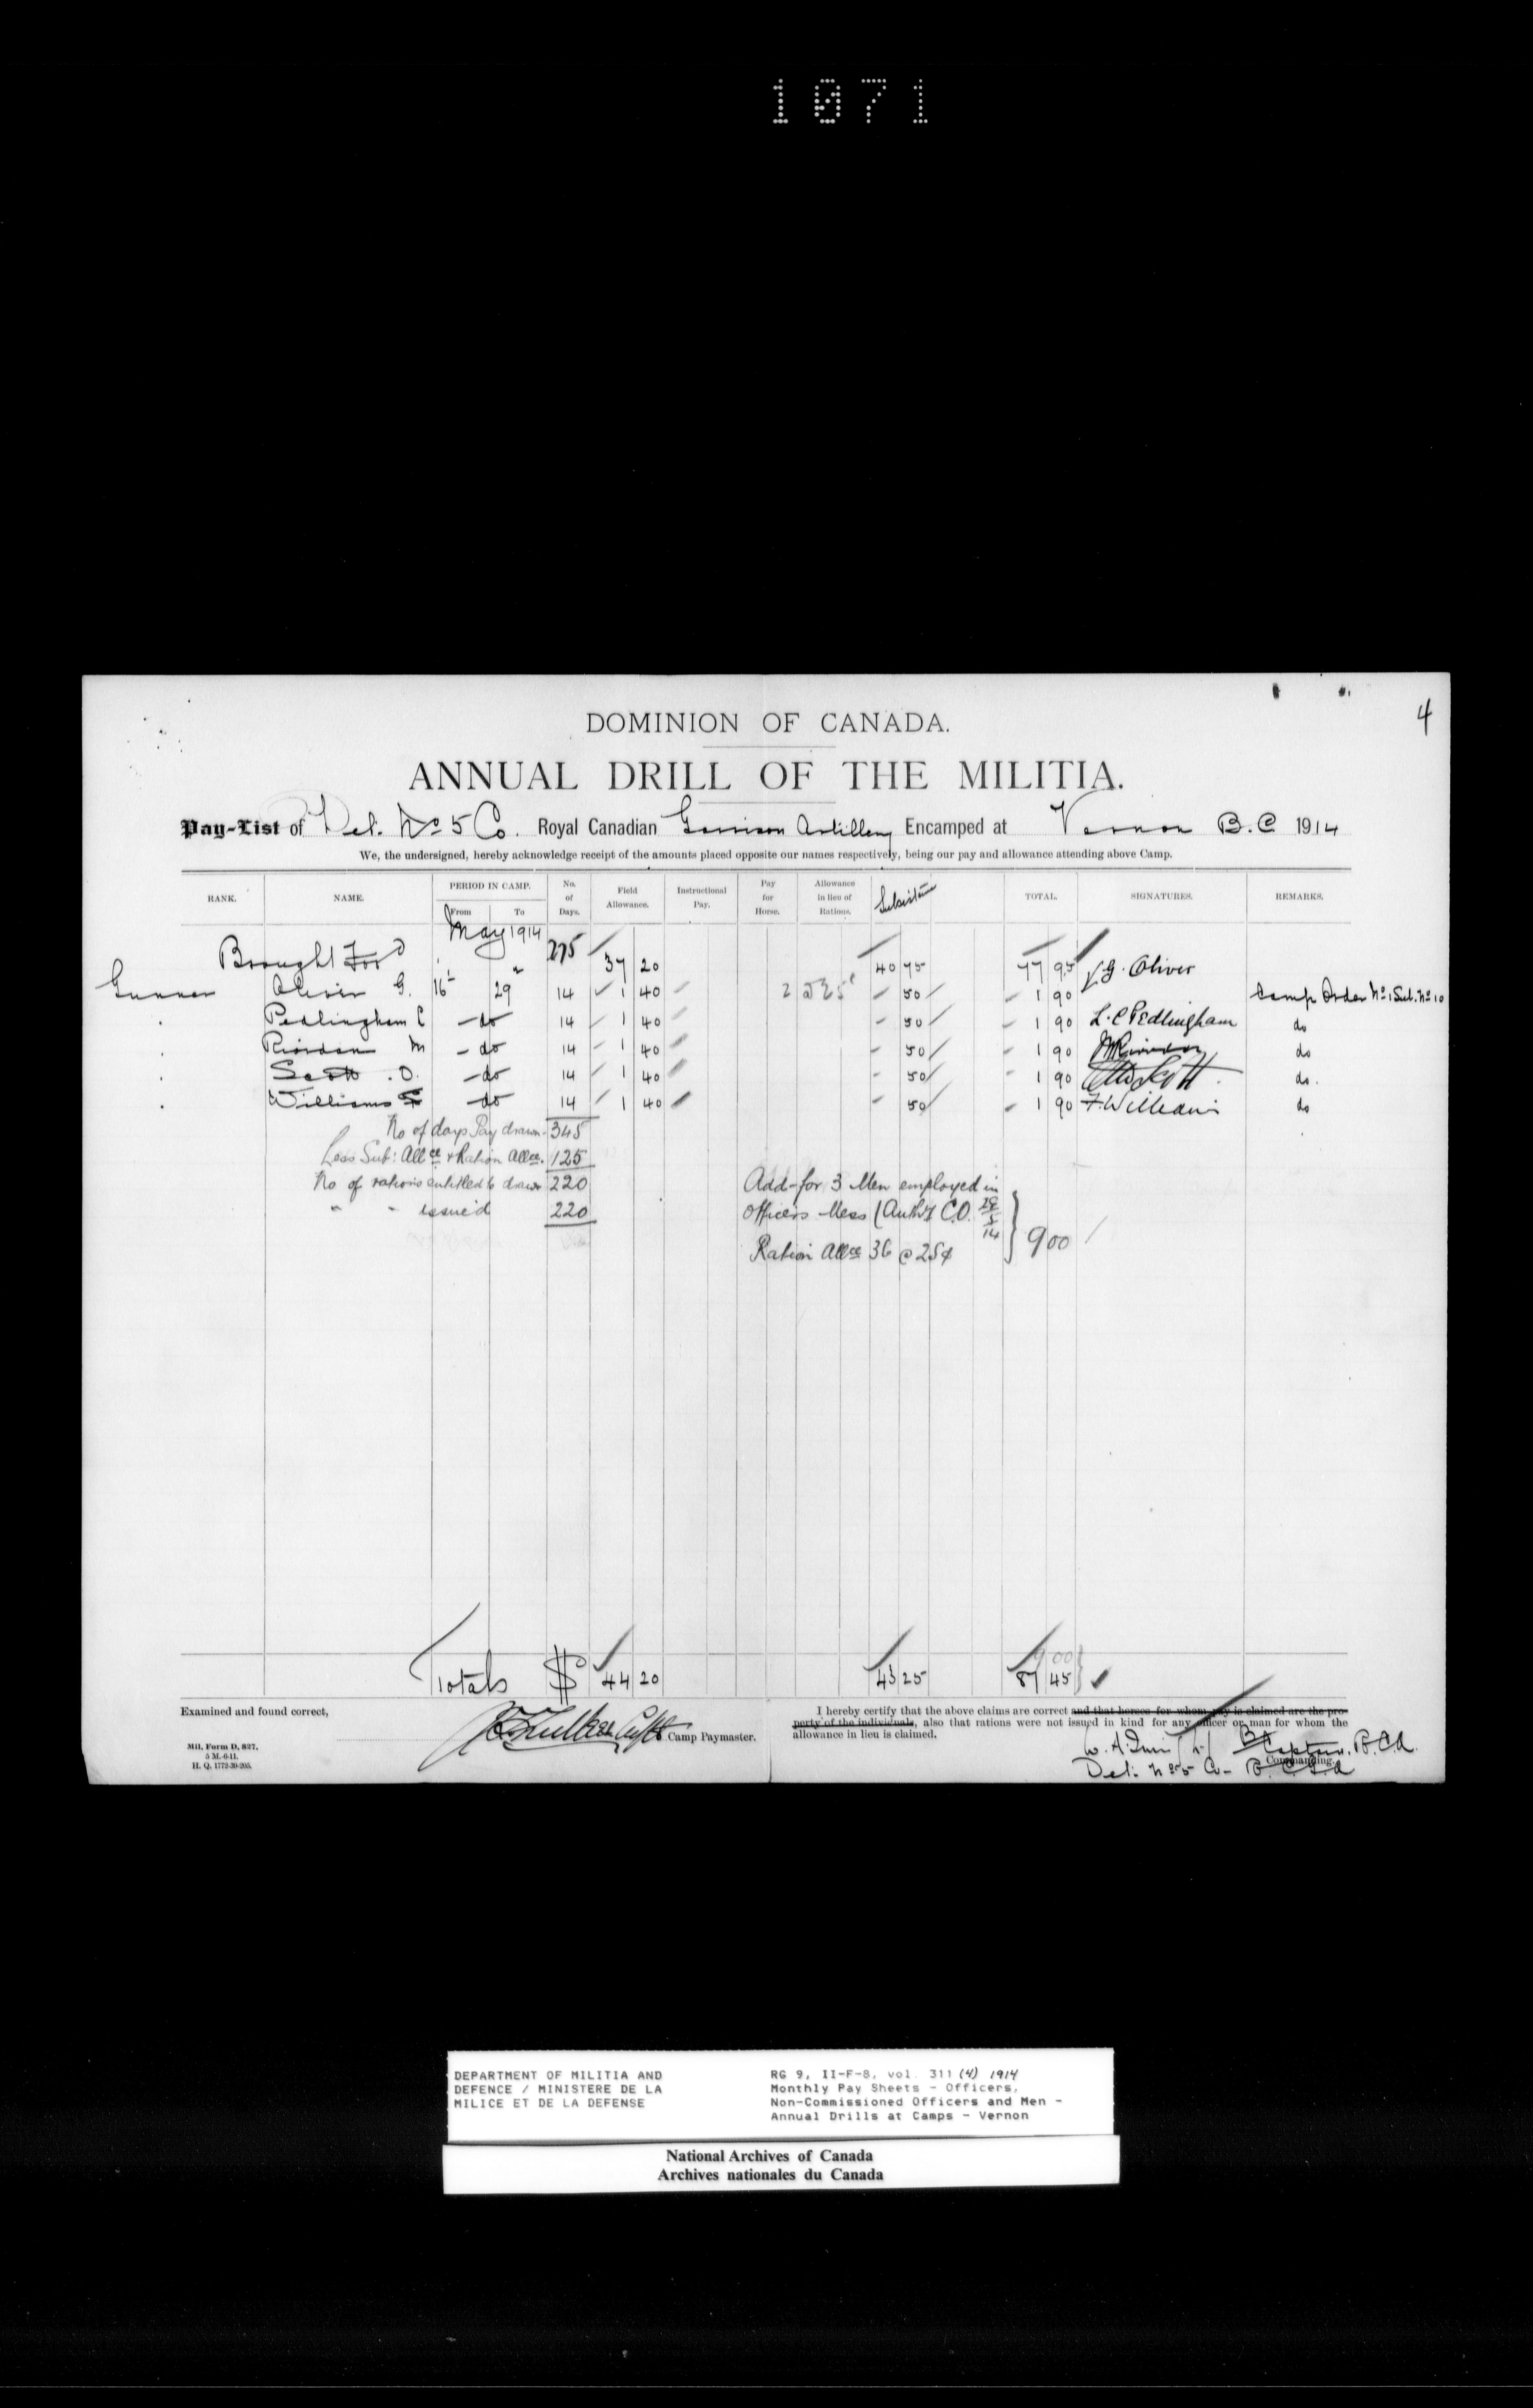 1071
4
DOMINION OF CANADA.
ANNUAL DRILL OF THE MILITIA.
Pay-List of Det. No 5 Co. Royal Canadian Garrison Artillery Encamped at Vernon B.C 1914
We, the undersigned, hereby acknowledge receipt of the amounts placed opposite our names respectively, being our pay and allowance attending above Camp.
RANK. NAME. PERIOD IN CAMP. From To No. of Days. Field Allowance. Instructional Pay. Pay for Horse. Allowance in lieu of Rations. Subsistence TOTAL. SIGNATURES. REMARKS.
May 1914
Brought Ford 275 37 20 40 75 77 95
Gunner Oliver G. 16 29 14 1 40 50 1 90 G. Oliver Camp Order No 1 Sub. No 10
" Pedlingham C - do 14 1 40 50 1 90 L. C Pedlingham do
" Riordan M - do 14 1 40 50 1 90 M Riordan do
" Scott . O. - do 14 1 40 50 1 90 Otto Scott do.
" Williams F - do 14 1 40 50 1 90 F. Williams do
No of days Pay drawn 345
Less Sub: Allce & Ration Allce. 125
No of rations entitled to draw 220
" " issued 220
Add for 3 Men employed in
Officers Mess (Auth'y C.O. 28/5/14
Ration Allce 36 @ 25¢ 9 00
9 00
Totals $ 44 20 43 25 87 45
Examined and found correct,
Camp Paymaster.
Mil. Form D. 827.
5 M.-6-11.
H. Q. 1772-39-205.
I hereby certify that the above claims are correct and that horses for whom pay is claimed are the property of the individuals, also that rations were not issued in kind for any officer or man for whom the allowance in lieu is claimed.
Captain. R.C.A.
Commanding.
Det. No 5 Co-
DEPARTMENT OF MILITIA AND
DEFENCE / MINISTERE DE LA
MILICE ET DE LA DEFENSE
RG 9, II-F-8, vol. 311 (4) 1914
Monthly Pay Sheets - Officers,
Non-Commissioned Officers and Men -
Annual Drills at Camps - Vernon
National Archives of Canada
Archives nationales du Canada